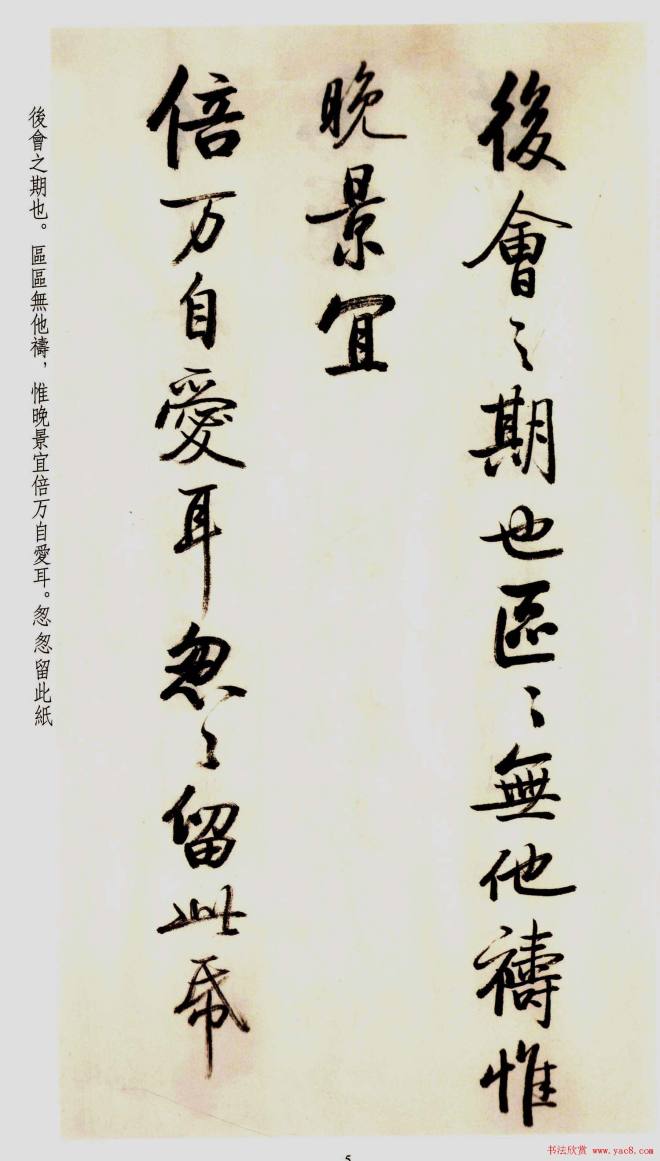 後會之期也區〻無他禱惟
晚景冝
倍万自愛耳怱〻留此帋
後會之期也。區區無他禱，惟晚景宜倍万自愛耳。怱怱留此紙
5
书法欣赏 www.yac8.com